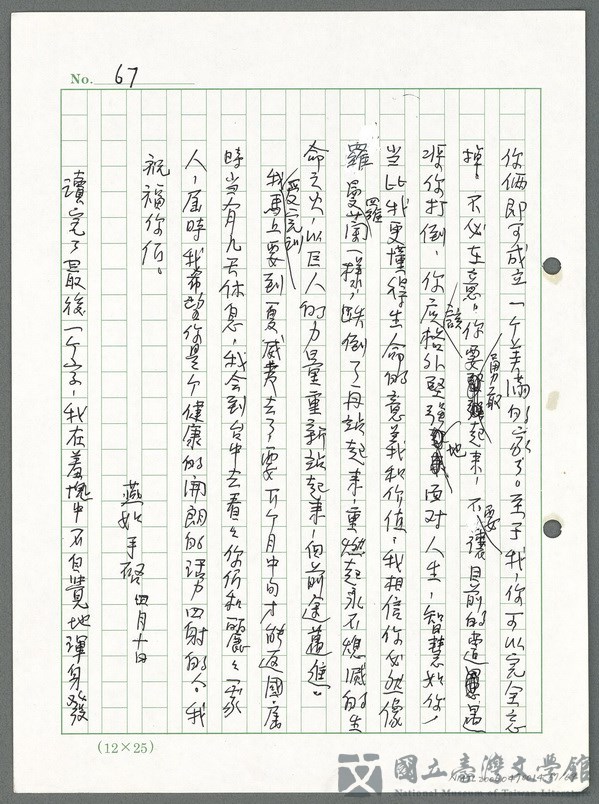 No. 67
你倆即可成立一个美滿的家了。至于我，你可以完全忘
掉。不必在意。你要勇敢起來，不要讓目前的遭遇
把你打倒，你應該格外堅強地面對人生，智慧如你，
當比我更懂得生命的意義和价值，我相信你必然像
羅曼羅蘭一樣，跌倒了再站起來，重燃起永不熄滅的生
命之火，以巨人的力量重新站起來，向前途邁進。
我馬上要到夏威夷受完訓去了，要下个月中旬才能返國，屆
時当有几天休息，我会到台中去看看你們和麗麗一家
人，屆時我希望你是个健康的開朗的活力四射的人。我
祝福你們。
燕如手啓 四月十日
讀完了最後一个字，我在羞愧中不自覺地渾身發
(12×25)
國立臺灣文學館
National Museum of Taiwan Literature